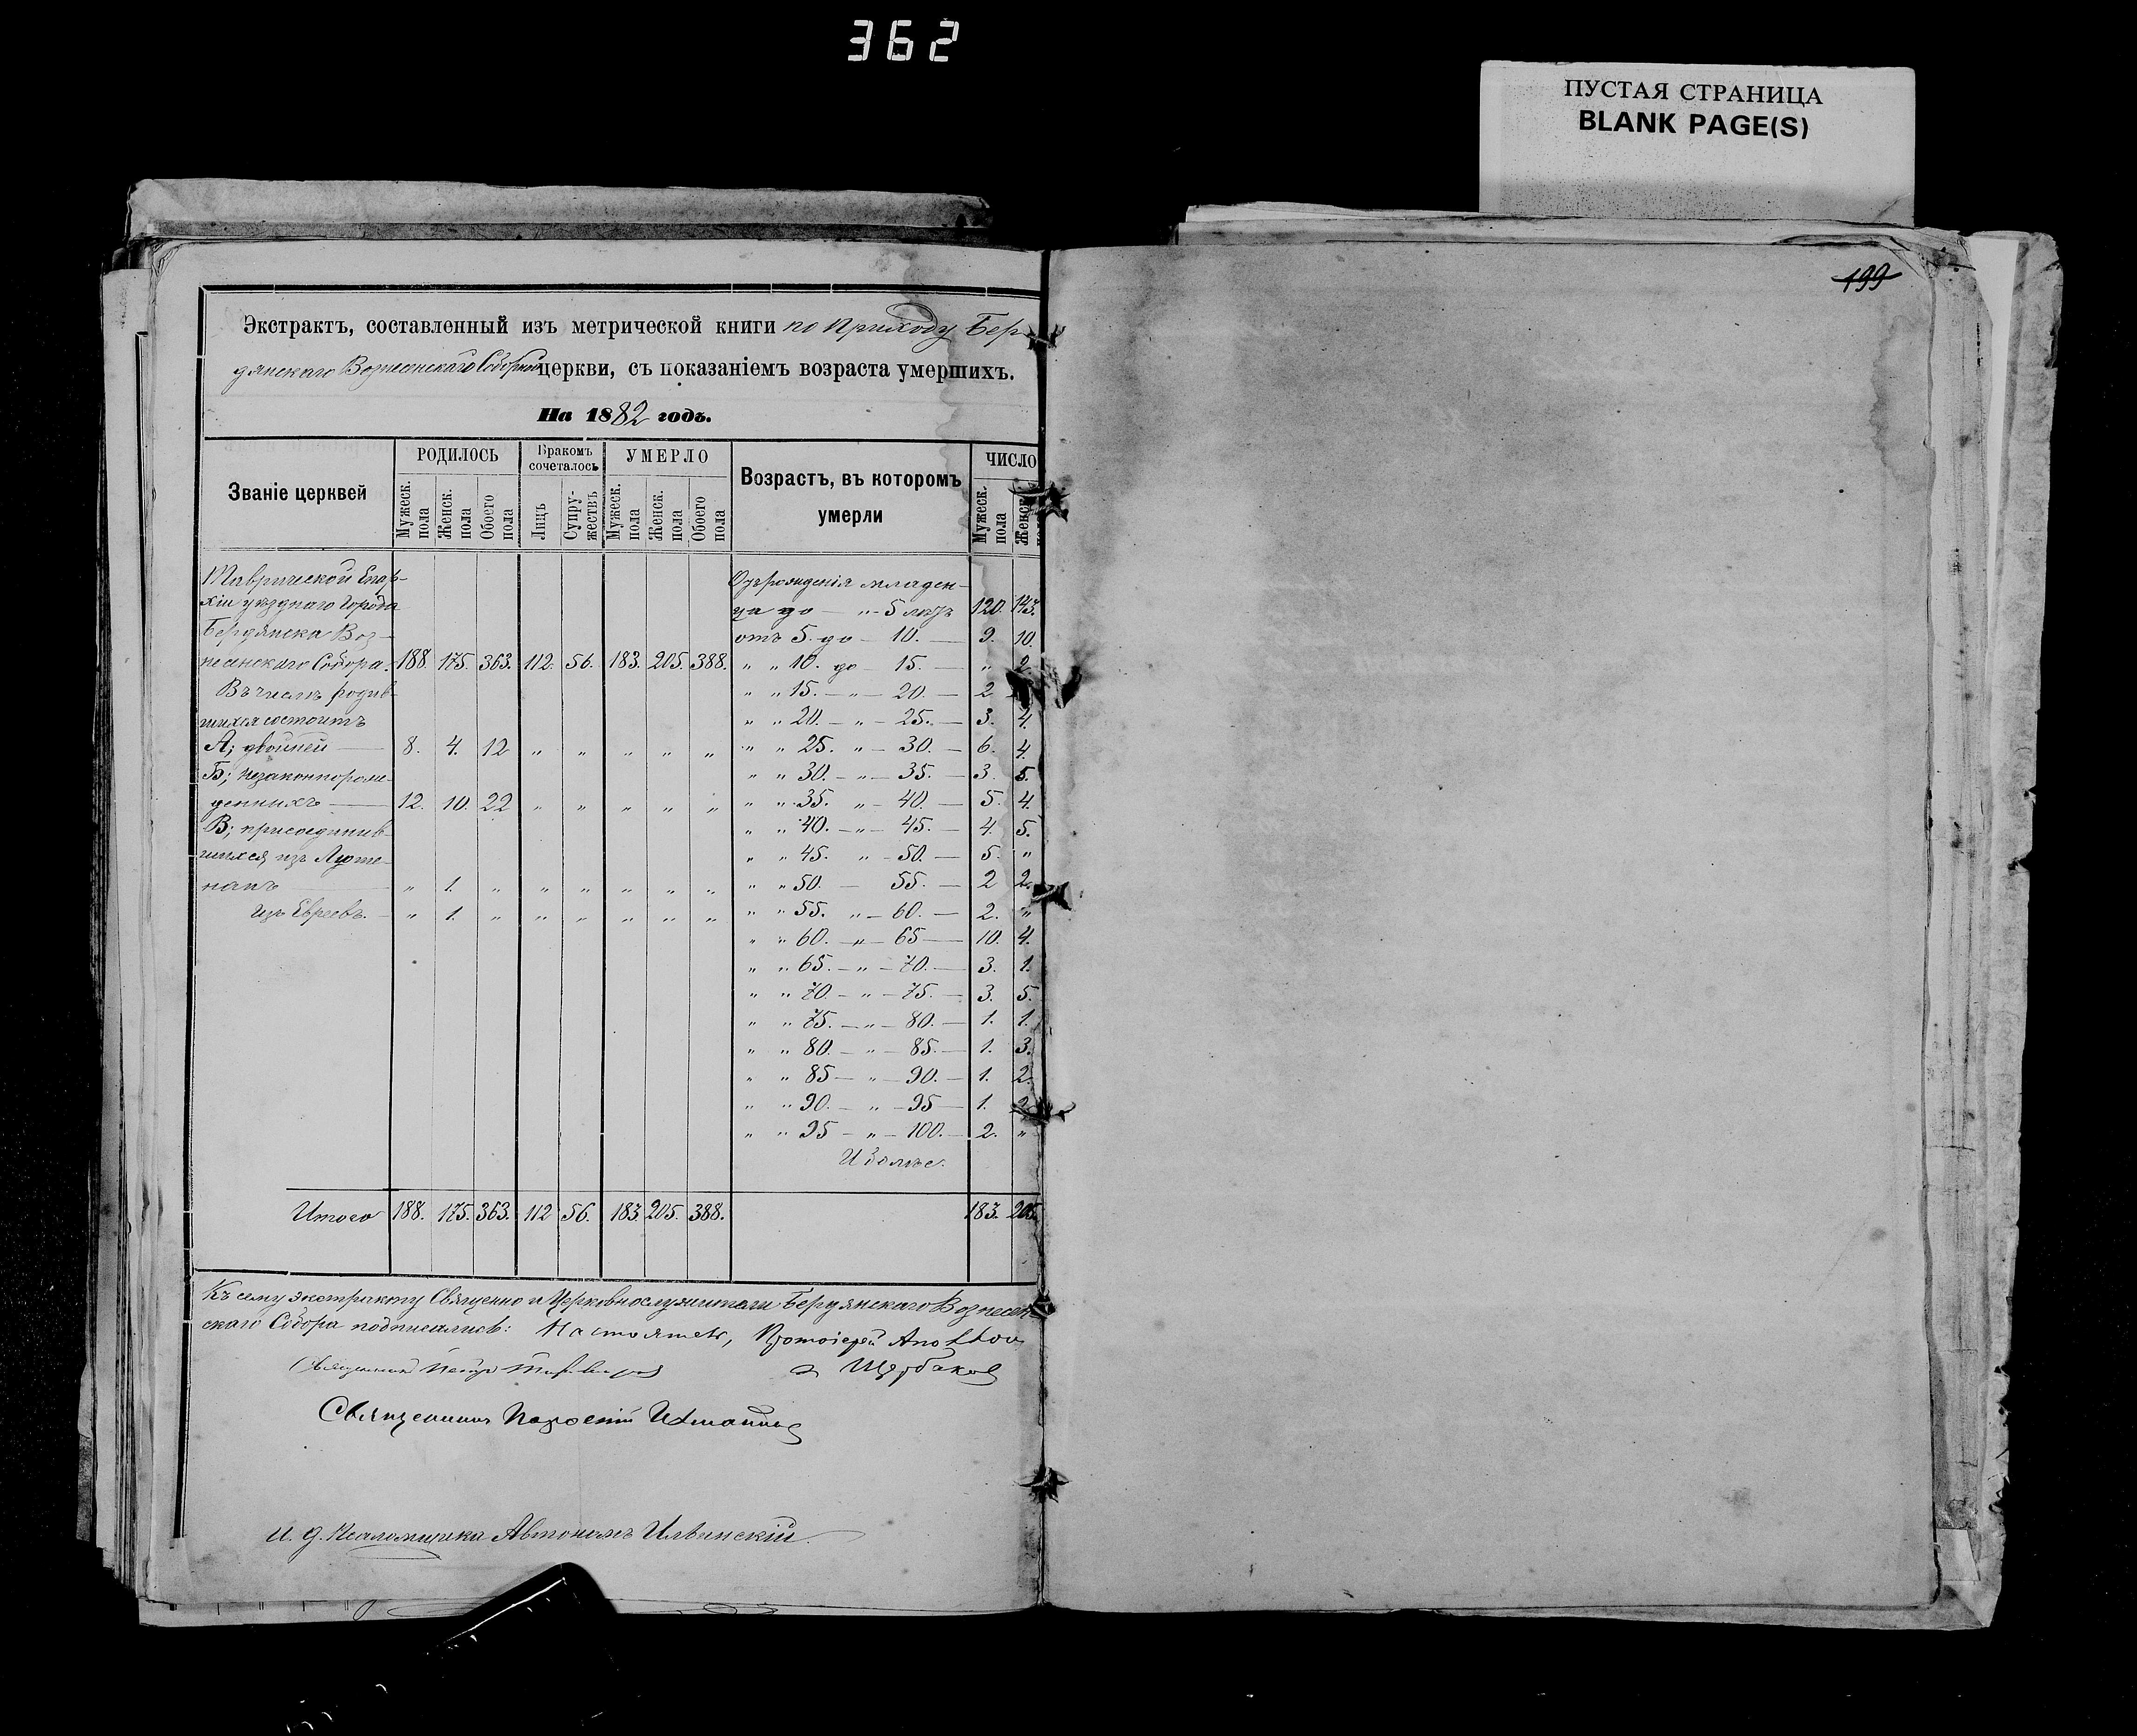 362
ПУСТАЯ СТРАНИЦА
BLANK PAGE(S)
199
Экстрактъ, составленный изъ метрической книги по приходу Бер-
дянскаго Вознесенскаго Соборной церкви, съ показаніемъ возраста умершихъ.
На 1882 годъ.
Званіе церквей
РОДИЛОСЬ
Мужеск. пола
Женск. пола
Обоего пола
Бракомъ сочеталось
Лицъ
Супружествъ
УМЕРЛО
Мужеск. пола
Женск. пола
Обоего пола
Возрастъ, въ которомъ умерли
ЧИСЛО
Мужеск. пола
Женск.
Таврической Епар-
хіи уѣзднаго города
Бердянска Воз-
несенскаго Собора. 188. 175. 363. 112. 56. 183. 205. 388.
Въ числѣ родив-
шихся состоитъ
А; двойней — 8. 4. 12 " " " " "
Б; незаконнорож-
денныхъ — 12. 10. 22 " " " " "
В; присоединив-
шихся изъ Люте-
ранъ — " 1. " " " " " "
Изъ Евреевъ. — " 1. " " " " " "
Отъ рожденія младен-
ца до — " 5 лѣтъ 120. 143.
отъ 5. до — 10. — 9. 10.
" " 10. до — 15. — " 2
" " 15. — " — 20. — 2
" " 20. — " — 25. — 3. 4.
" " 25. " — 30. — 6. 4.
" " 30. — " — 35. — 3. 5.
" " 35. " — 40. — 5. 4.
" " 40. — " — 45. — 4. 5.
" " 45. " — 50. — 5. "
" " 50. — 55. — 2 2.
" " 55. " — 60. — 2. "
" " 60. — " — 65 — 10. 4.
" " 65. — " — 70. — 3. 1.
" " 70. — " — 75. — 3. 5.
" " 75. — " — 80. — 1. 1.
" " 80. — " — 85. — 1. 3.
" " 85 — " — 90. — 1. 2.
" " 90. — " — 95 — 1. 2
" " 95 — " — 100. — 2. "
И болѣе.
Итого 188. 175. 363. 112 56. 183. 205. 388. 183. 205.
Къ сему экстракту Священно и Церковнослужители Бердянскаго Вознесен-
скаго Собора подписались: Настоятель, Протоіерей
Священникъ Петръ
Щербаковъ
Священникъ
И. д. Псаломщика Автономъ Ильинскій.